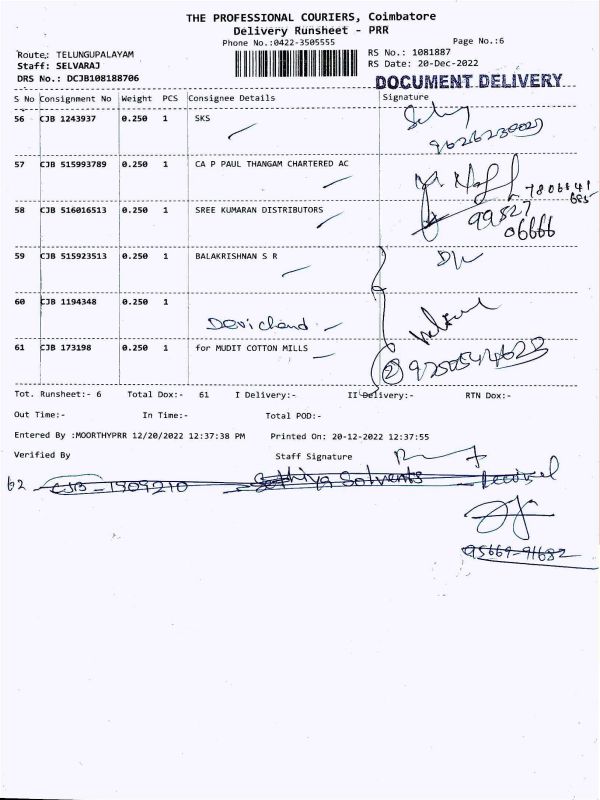 THE PROFESSIONAL COURIERS, Coimbatore
Delivery Runsheet - PRR
Phone No.:0422-3505555
Page No.:6
Route,: TELUNGUPALAYAM
RS No.: 1081887
Staff: SELVARAJ
RS Date: 20-Dec-2022
DRS No.: DCJB108188706
DOCUMENT DELIVERY
S No Consignment No Weight PCS Consignee Details Signature
56 CJB 1243937 0.250 1 SKS
57 CJB 515993789 0.250 1 CA P PAUL THANGAM CHARTERED AC
58 CJB 516016513 0.250 1 SREE KUMARAN DISTRIBUTORS
99527
06666
59 CJB 515923513 0.250 1 BALAKRISHNAN S R
60 CJB 1194348 0.250 1
Devichand
61 CJB 173198 0.250 1 for MUDIT COTTON MILLS
Tot. Runsheet:- 6 Total Dox:- 61 I Delivery:- II Delivery:- RTN Dox:-
Out Time:- In Time:- Total POD:-
Entered By :MOORTHYPRR 12/20/2022 12:37:38 PM Printed On: 20-12-2022 12:37:55
Verified By Staff Signature
62 CJB - 1909210 Sethiya Solvents
95669-91682